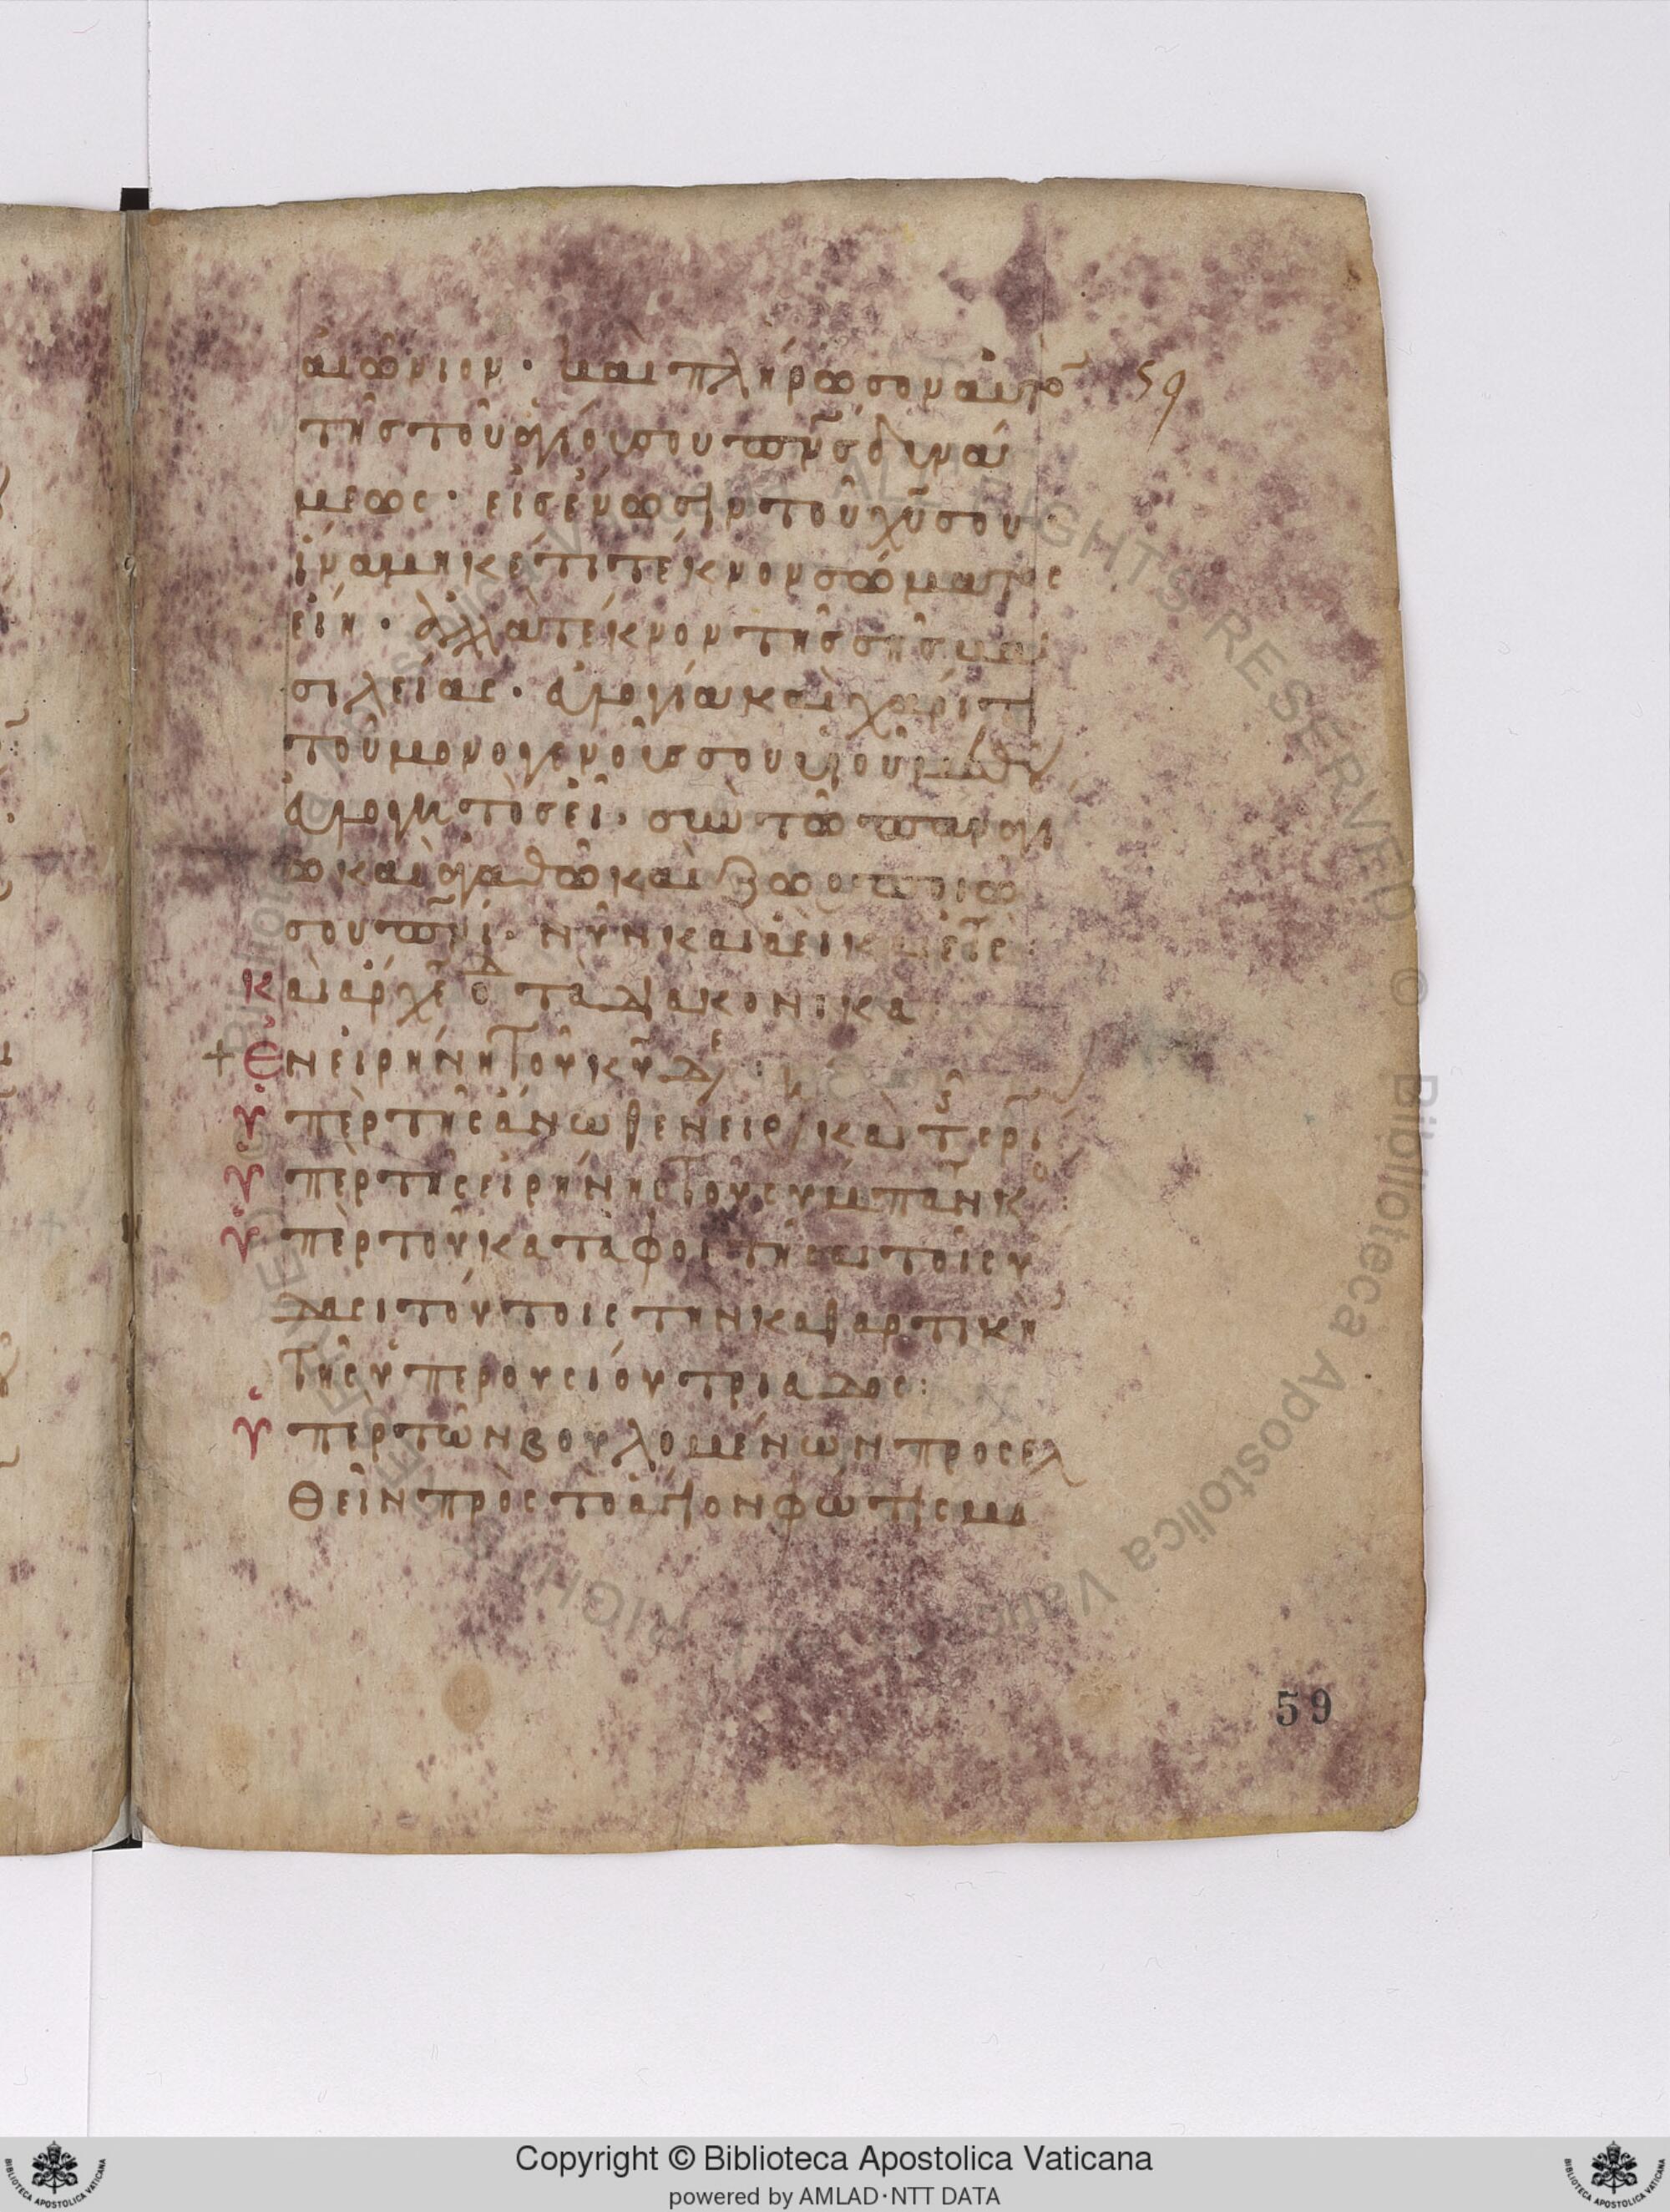 αἰώνιον· καὶ πλήρωσον αὐτὸ
τῆς τοῦ ἁγίου σου πνς δυνά
μεως· εἰς ἕνωσιν τοῦ χυ σου·
ἵνα μηκέτι τέκνον σώματος
εἴη· ἀλλὰ τέκνον τῆς σῆς βα
σιλείας· εὐδοκία καὶ χάριτι
τοῦ μονογενοῦς σου υἱοῦ μεθ οὗ
εὐλογητὸς εἶ· σὺν τῷ παναγί
ω καὶ ἀγαθῷ καὶ ζωοποιῷ
σου πνι· νῦν καὶ ἀεὶ καὶ εἰς
καὶ ἄρχε ὁ δ τὰ διακονικα
+ Ἐν εἰρήνη τοῦ κυ δε
Ὑπὲρ τῆς ἄνωθεν εἰρ/ καὶ τ σρι
Ὑπὲρ τῆς εἰρήνης τοῦ σύμπαν κο
Ὑπὲρ τοῦ καταφοιτῆσαι τοῖς ὕ
δασι τούτοις τὴν καθαρτικὴ
τῆς ὑπερουσίου τριάδος:
Ὑπὲρ τῶν βουλομένων προσελ
θεῖν πρὸς τὸ ἅγιον φώτισμα
59
59
Copyright © Biblioteca Apostolica Vaticana
powered by AMLAD·NTT DATA